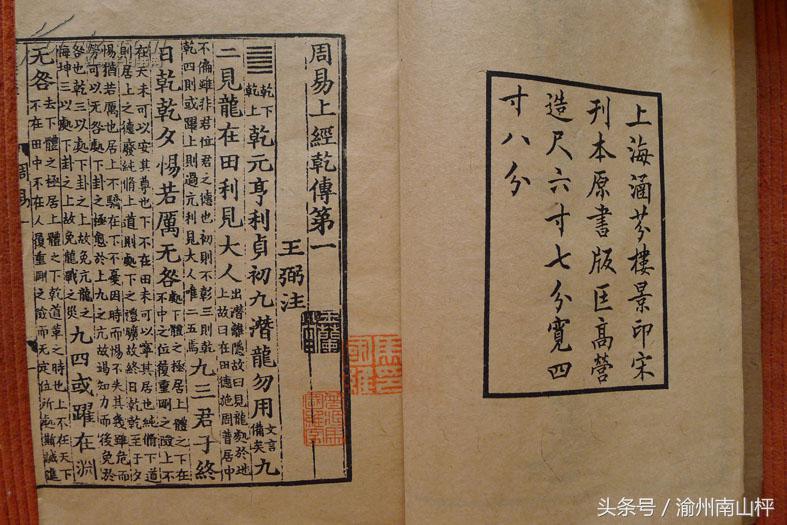 上海涵芬樓景印宋
刊本原書版匡高營
造尺六寸七分寬四
寸八分
周易上經乾傳第一
王弼注
䷀乾下乾上乾元亨利貞初九潛龍勿用文言備矣九
二見龍在田利見大人出潛離隱故曰見龍處於地上故曰在田德施周普居中
不偏雖非君位君之德也初則不彰三則乾乾四則或躍上則過亢利見大人唯二五焉九三君子終
日乾乾夕惕若厲无咎處下體之極居上體之下在不中之位履重剛之險上不
在天未可以安其尊也下不在田未可以寧其居也純脩下道則居上之德廢純脩上道則處下之禮曠故終日乾乾至于夕
惕猶若厲也居上不驕在下不憂因時而惕不失其幾雖危而勞可以无咎處下卦之極愈於上九之亢故竭知力而後免於
咎也乾三以處下卦之上故免亢龍之悔坤三以處下卦之上故免龍戰之災九四或躍在淵
无咎去下體之極居上體之下乾道革之時也上不在天下不在田中不在人履重剛之險而无定位所處斯誠進
周易一
头条号／渝州南山枰